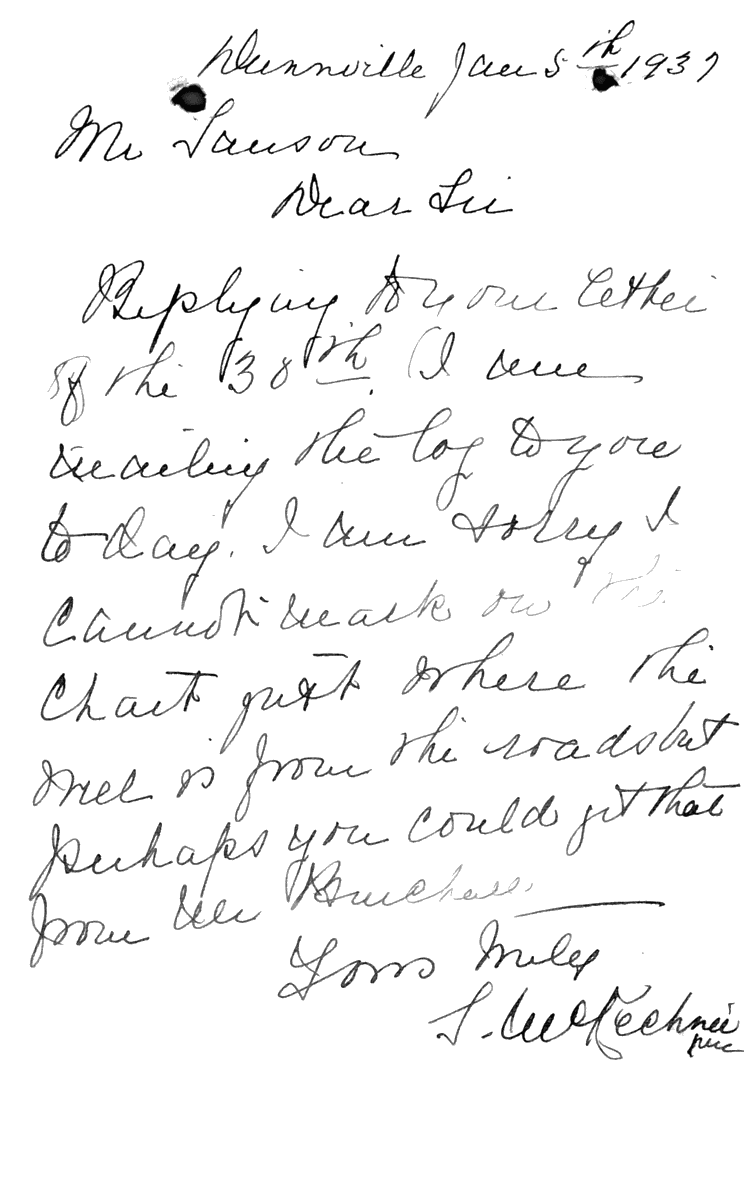 Dunnville Jan 5th 1937
Mr Sanson
Dear Sir
Replying to your letter
of the 30th. I am
mailing the log to you
to day. I am sorry I
cannot mark on the
Chart just where the
well is from the roads but
perhaps you could get that
from Mr
Yours Truly
S. McKechnie